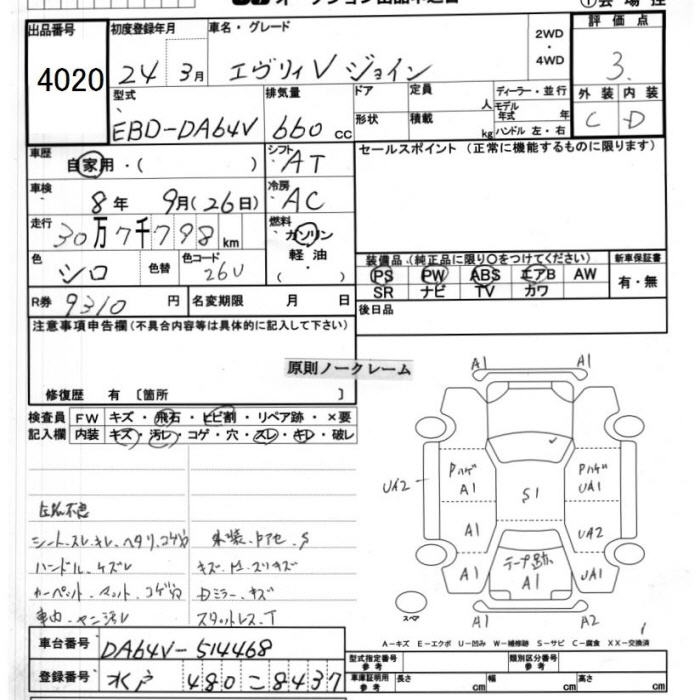 オークション出品申込書
①会場控
出品番号 初度登録年月 車名・グレード 2WD・4WD 評価点
4020 24年 3月 エヴリィV ジョイン 3.
型式 排気量 ドア 定員 人 ディーラー・並行 外装 内装
EBD-DA64V 660cc 形状 積載 kg モデル年式 年 ハンドル 左・右 C D
車歴 自家用・( ) シフト AT セールスポイント (正常に機能するものに限ります)
車検 8年 9月(26日) 冷房 AC
走行 30万7千798km 燃料 ガソリン・軽油・( )
色 シロ 色替 色コード 26U
装備品 (純正品に限り〇をつけてください) 新車保証書
PS PW ABS エアB AW 有・無
SR ナビ TV カワ
R券 9310円 名変期限 月 日 後日品
注意事項申告欄(不具合内容等は具体的に記入して下さい)
原則ノークレーム
修復歴 有 〔箇所 〕
検査員 FW キズ・飛石・ヒビ割・リペア跡・×要
記入欄 内装 キズ・汚レ・コゲ・穴・スレ・キレ・破レ
シート.スレ.キレ.ヘタリ.コゲ穴
ハンドル.ケズレ
カーペット.マット.コゲ穴
車内.ヤニ汚レ
Dミラー.キズ
スタットレス.T
A1 A1
Pハゲ A1 Pハゲ UA1
UA2 S1
A1 UA2
A1 テープ跡 A1 UA1
スペア A1 A2
A-キズ E-エクボ U-凹み W-補修跡 S-サビ C-腐食 XX-交換済
車台番号 DA64V-514468
登録番号 水戸 480 こ 8437
型式指定番号 参考 類別区分番号 参考
車庫証明用 参考 長さ cm 幅 cm 高さ cm